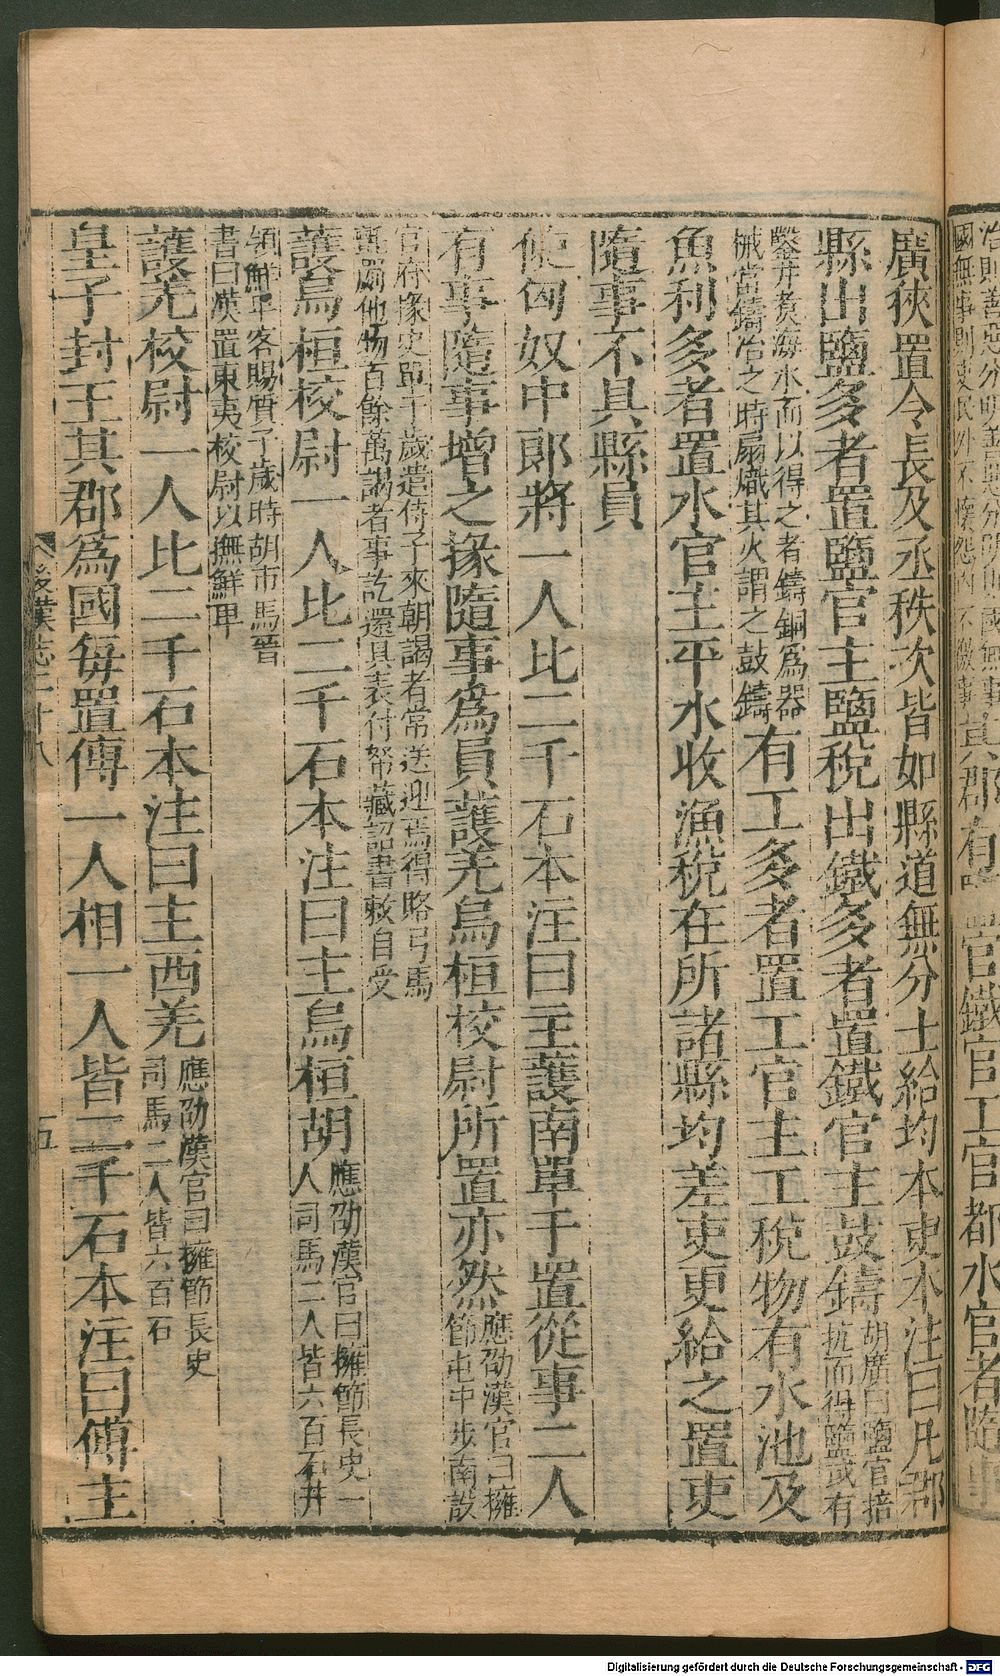 廣狹置令長及丞秩次皆如縣道無分土給均本吏本注曰凡郡
縣出鹽多者置鹽官主鹽稅出鐵多者置鐵官主鼓鑄
胡廣曰鹽官掊
抗而得鹽或有
鑿井煑海水而以得之者鑄銅爲器
械當鑄冶之時扇熾其火謂之鼓鑄
有工多者置工官主工稅物有水池及
魚利多者置水官主平水收漁稅在所諸縣均差吏更給之置吏
隨事不具縣員
使匈奴中郎將一人比二千石本注曰主護南單于置從事二人
有事隨事增之掾隨事爲員護羌烏桓校尉所置亦然
應劭漢官曰擁
節屯中步南設
官府掾史單于歲遣侍子來朝謁者常送迎焉得賂弓馬
氈罽他物百餘萬謁者事訖還具表付帑藏詔書敕自受
護烏桓校尉一人比二千石本注曰主烏桓胡
應劭漢官曰擁節長史一
人司馬二人皆六百石并
領鮮卑客賜質子歲時胡市馬晉
書曰漢置東夷校尉以撫鮮卑
護羌校尉一人比二千石本注曰主西羌
應劭漢官曰擁節長史
司馬二人皆六百石
皇子封王其郡爲國每置傅一人相一人皆二千石本注曰傅主
後漢志二十八
五
具郡有
官鐵官工官都水官者隨事
Digitalisierung gefördert durch die Deutsche Forschungsgemeinschaft - DFG